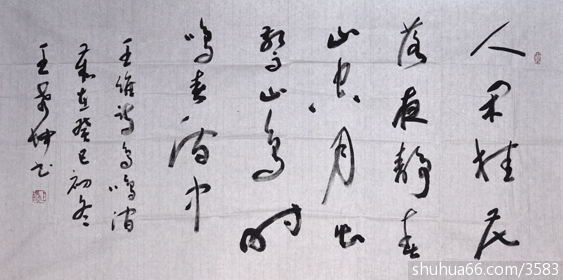 人闲桂花
落夜静春
山空月出
驚山鸟时
鸣春涧中
王维诗鸟鸣涧
岁在癸巳初冬
王 书
shuhua66.com/3583